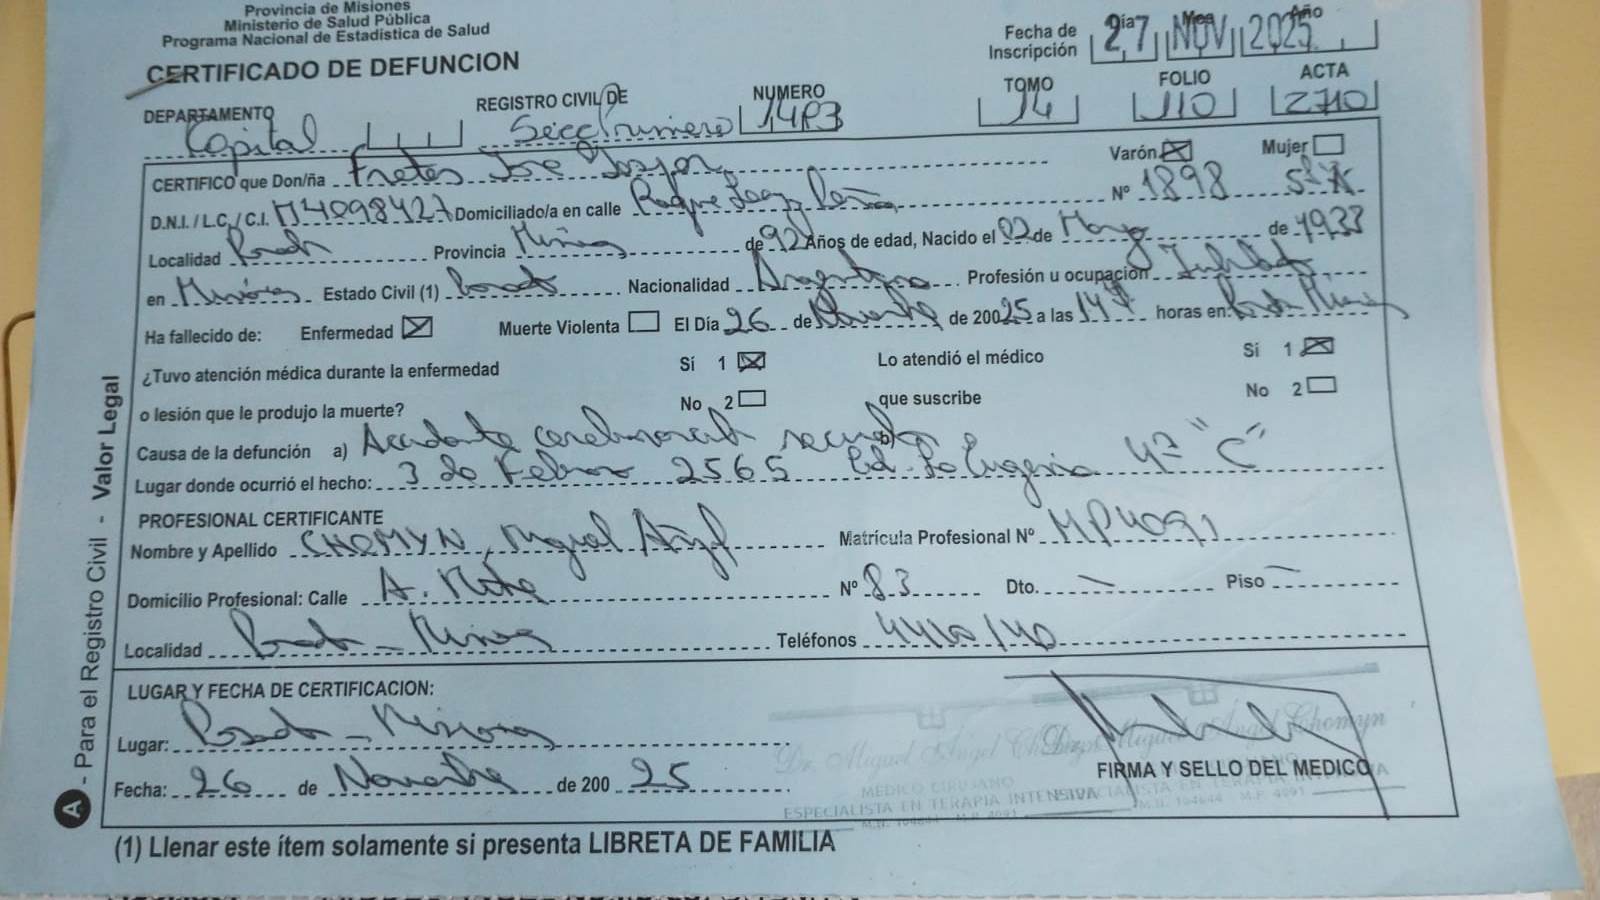 Provincia de Misiones
Ministerio de Salud Pública
Programa Nacional de Estadística de Salud
CERTIFICADO DE DEFUNCION
Fecha de Inscripción Día 27 Mes NOV Año 2025
DEPARTAMENTO Capital REGISTRO CIVIL DE NUMERO TOMO 14 FOLIO 110 ACTA 2710
CERTIFICO que Don/ña Fretes José Varón Mujer
D.N.I. / L.C. / C.I. M4098427 Domiciliado/a en calle Roque Saenz Peña Nº 1898
Localidad Posadas Provincia Misiones de 92 Años de edad, Nacido el 02 de Mayo de 1933
en Misiones Estado Civil (1) Nacionalidad Argentina Profesión u ocupación Jubilado
Ha fallecido de: Enfermedad Muerte Violenta El Día 26 de Noviembre de 200 25 a las horas en: Posadas Misiones
¿Tuvo atención médica durante la enfermedad Sí 1 Lo atendió el médico Si 1
o lesión que le produjo la muerte? No 2 que suscribe No 2
Causa de la defunción a) Accidente b)
Lugar donde ocurrió el hecho: 3 de Febrero 2565 Ed. La Eugenia 4º "C"
PROFESIONAL CERTIFICANTE
Nombre y Apellido CHOMYN, Miguel Angel Matrícula Profesional Nº MP4091
Domicilio Profesional: Calle Nº 83 Dto. — Piso —
Localidad Posadas - Misiones Teléfonos
LUGAR Y FECHA DE CERTIFICACION:
Lugar: Posadas - Misiones
Dr. Miguel Angel Chomyn
MEDICO CIRUJANO
ESPECIALISTA EN TERAPIA INTENSIVA
M.P. 4091
FIRMA Y SELLO DEL MEDICO
Fecha: 26 de Noviembre de 200 25
(1) Llenar este ítem solamente si presenta LIBRETA DE FAMILIA
A - Para el Registro Civil - Valor Legal